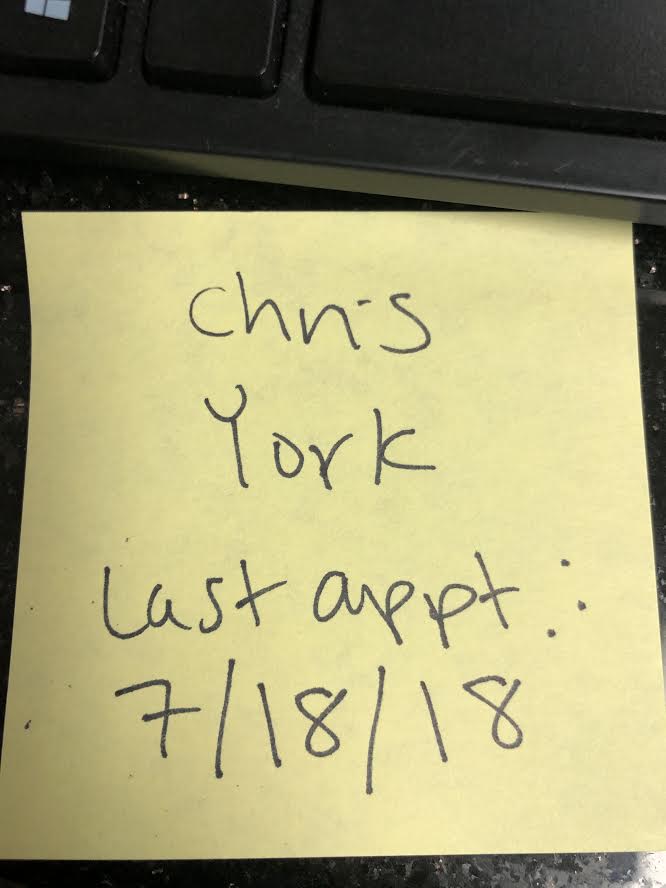 Chris
York
Last appt:
7/18/18